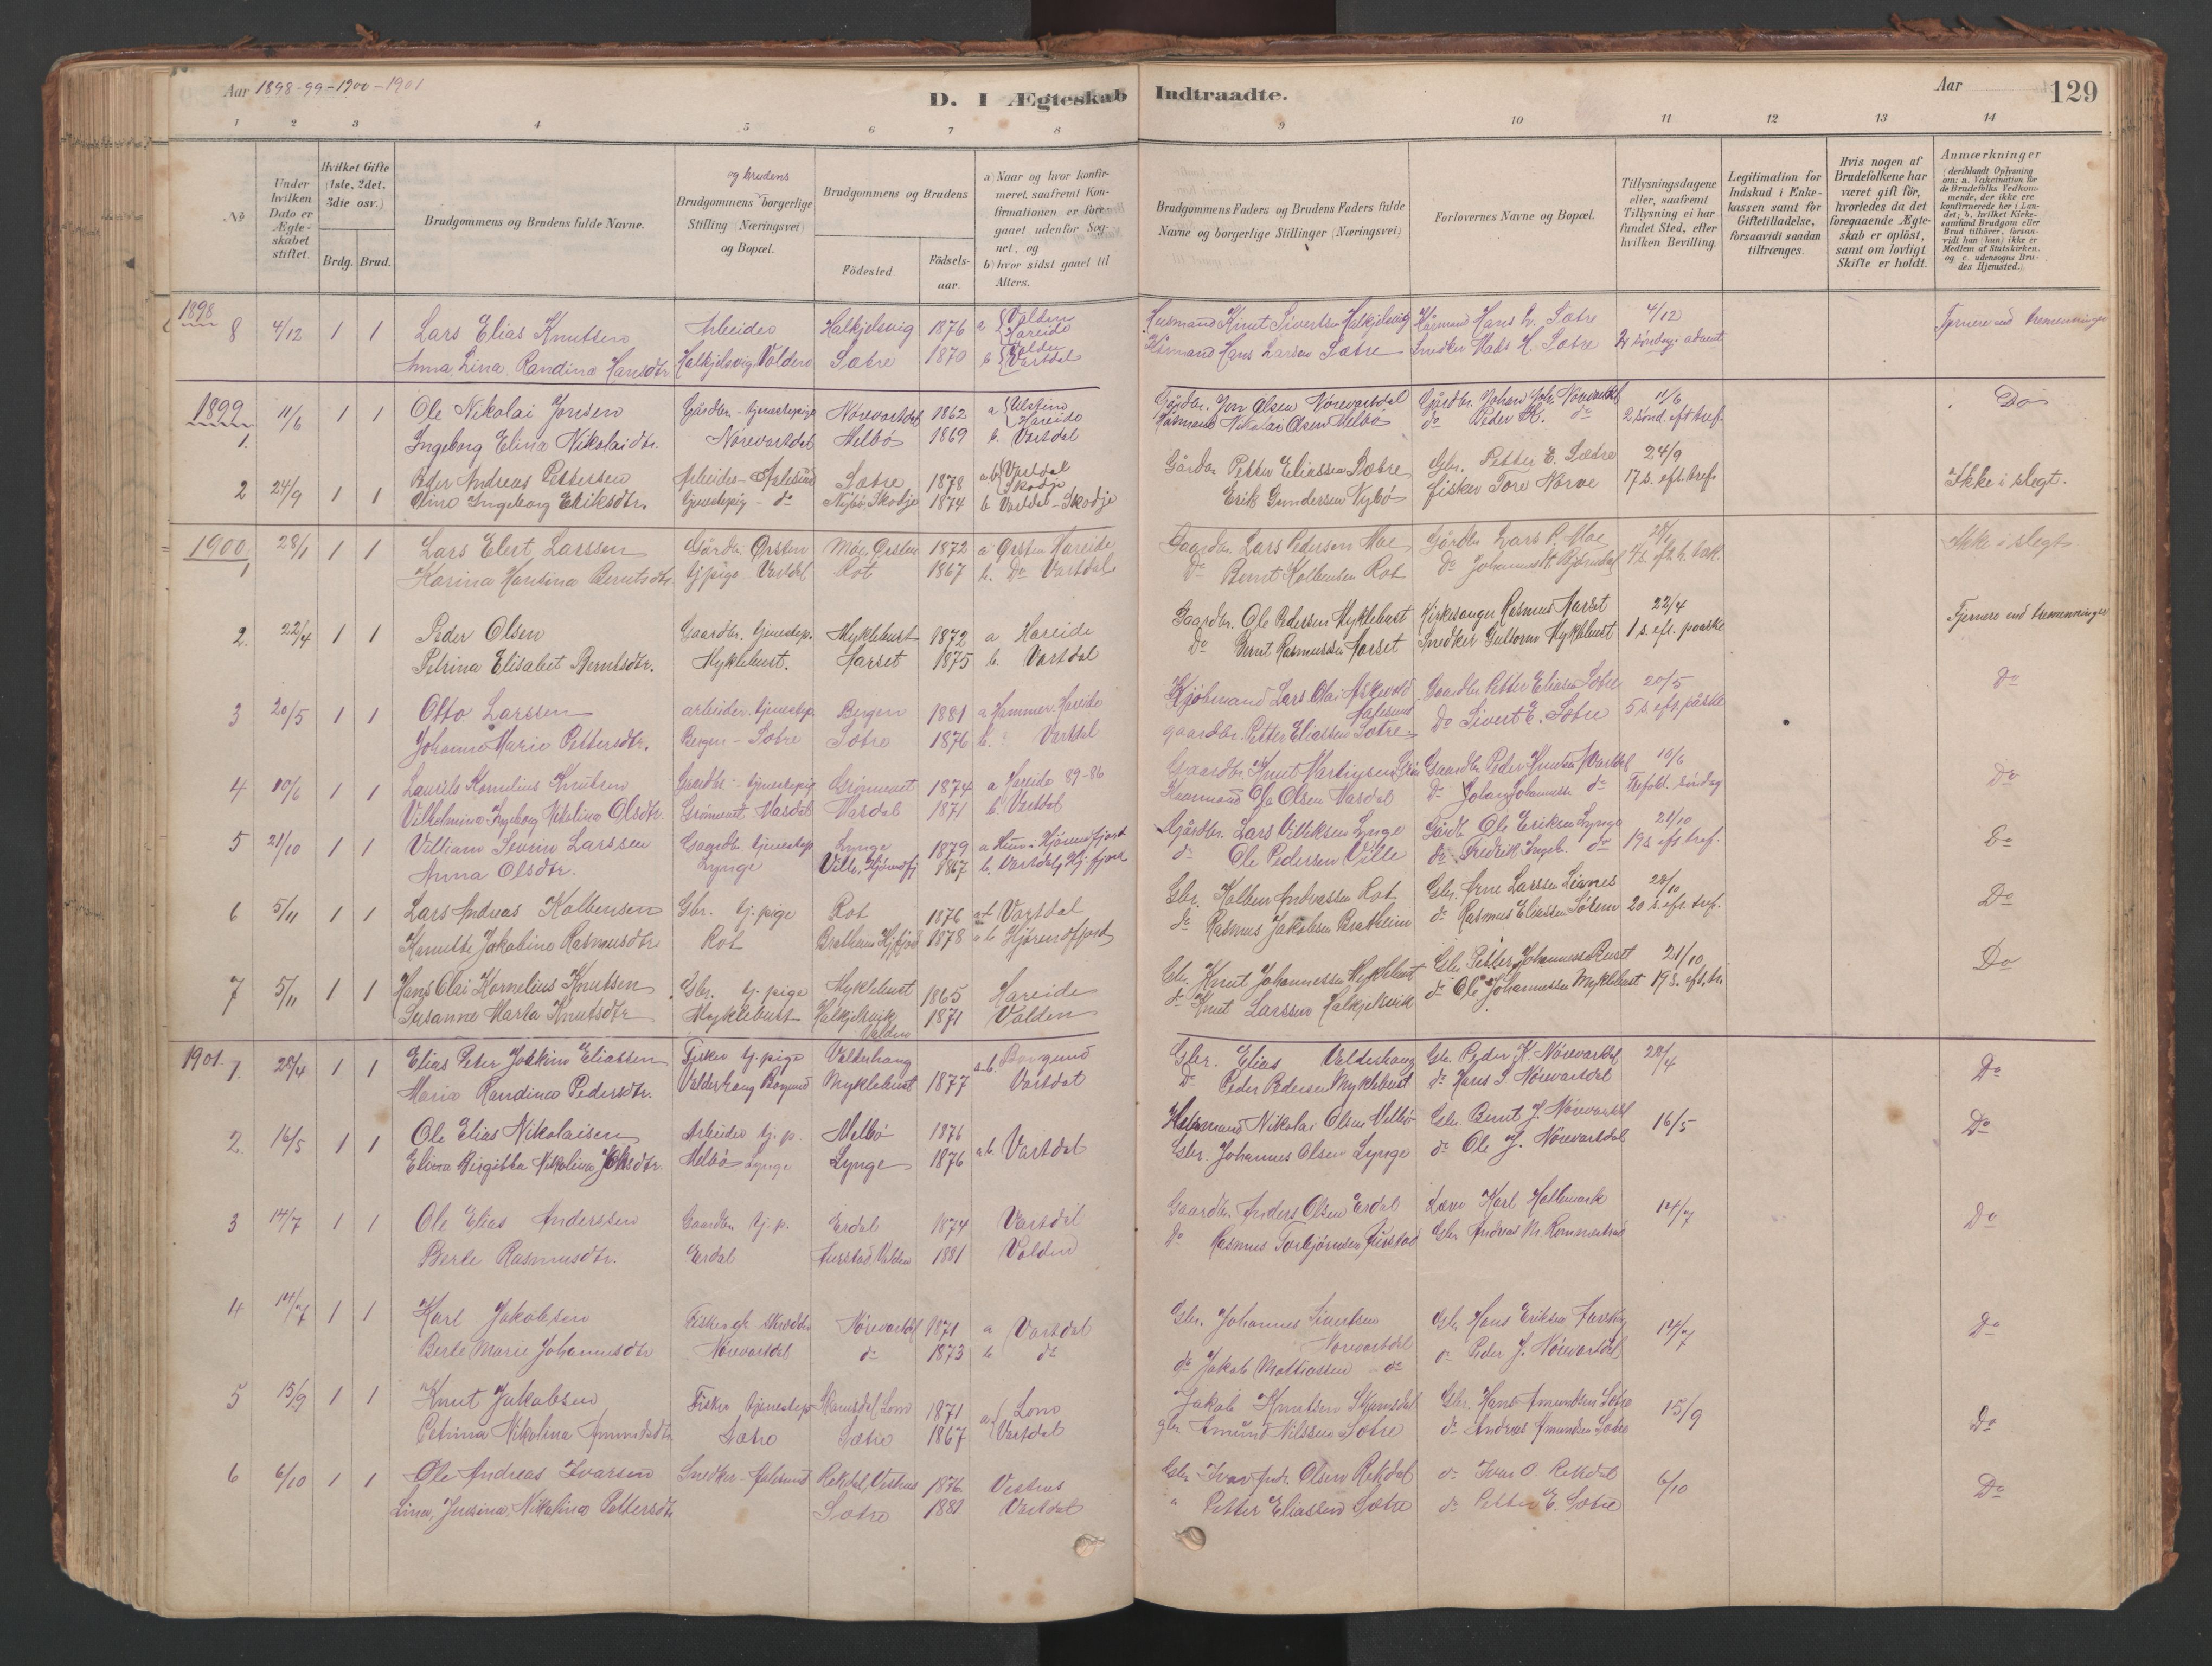 Aar 1898-99-1900-1901
D. I Ægteskab Indtraadte.
Aar
129
1 2 3 4 5 6 7 8 9 10 11 12 13 14
No.
Under hvilken Dato er Ægteskabet stiftet.
Hvilket Gifte (1ste, 2det. 3die osv.)
Brdg. Brud.
Brudgommens og Brudens fulde Navne.
og brudens
Brudgommens borgerlige Stilling (Næringsvei) og Bopæl.
Brudgommens og Brudens
Födested.
Födselsaar.
a) Naar og hvor konfirmeret, saafremt Konfirmationen er foregaaet udenfor Sognet, og
b) hvor sidst gaaet til Alters.
Brudgommens Faders og Brudens Faders fulde Navne og borgerlige Stillinger (Næringsvei)
Forlovernes Navne og Bopæl.
Tillysningsdagene eller, saafremt Tillysning ei har fundet Sted, efter hvilken Bevilling.
Legitimation for Indskud i Enkekassen samt for Giftetilladelse, forsaavidt saadan tiltrænges.
Hvis nogen af Brudefolkene har været gift før, hvorledes da det foregaaende Ægteskab er oplöst, samt om lovligt Skifte er holdt.
Anmærkninger (deriblandt Oplysning om: a. Vakcination for de Brudefolks Vedkommende, der ikke ere konfirmerede her i Landet; b. hvilket Kirkesamfund Brudgom eller Brud tilhörer, forsaavidt han (hun) ikke er Medlem af Statskirken. og c. udensogns Brudes Hjemsted.)
1898
8 4/12 1 1 Lars Elias Knutsen Arbeider Halkjelsvig 1876 a Volden Hareide Husmand Knut Sivertsen Halkjelsvig Kårmand Hans L. Sætre 4/12 Fjernere end tremenninger
Anna Lina Randina Hansdtr. Halkjelsvig Volden Sætre 1870 b Volden Vartdal Kårmand Hans Larsen Sætre Snedker Mads H. Sætre 2 söndag i advent
1899
1. 11/6 1 1 Ole Nikolai Jonsen Gårdbr. - tjenestepige Nörevartdal 1862 a Ulstein Hareide Gårdbr. Jon Olsen Nörevartdal Gårdbr. Johan Joh. Nörevartdal 11/6 Do
Ingeborg Elina Nikolaidtr. Nörevartdal Melbö 1869 b. Vartdal Husmand Nikolai Olsen Melbö do Peder K. do 2 sönd. eft. tref.
2 24/9 1 1 Peder Andreas Pettersen Arbeider - Aalesund Sætre 1878 a b Vartdal Skodje Gårdbr. Petter Eliassen Sætre Gbr. Petter E. Sætre 24/9 Ikke i slegt.
Oline Ingeborg Eriksdtr. Tjenestepig - do Nybö, Skodje 1874 b Vartdal - Skodje Erik Gundersen Nybö fisker Tore Nörve 17 s. eft. tref.
1900
1 28/1 1 1 Lars Elert Larssen Gårdbr. Örsten Moe, Örsten 1872 a Örsten Hareide Gaardbr. Lars Pedersen Moe Gårdbr. Lars P. Moe 28/1 Ikke i slegt
Karina Hansina Berntsdtr. tj. pige Vartdal Rot 1867 b. Do Vartdal Do Bernt Kolbensen Rot Do Johannes H. Björndal 4 s. eft. h. 3 k.
2. 22/4 1 1 Peder Olsen Gaardbr. tjenestep. Myklebust 1872 a Hareide Gaardbr. Ole Pedersen Myklebust Kirkesanger Rasmus Aarset 22/4 Fjernere end tremenninger
Petrina Elisabet Berntsdtr. Myklebust. Aarset 1875 b. Vartdal Do Bernt Rasmussen Aarset Snedker Guttorm Myklebust 1 s. eft. paaske
3 20/5 1 1 Otto Larssen arbeider. tjenestep. Bergen 1881 a Hammer. Hareide Kjöbmand Lars Olai Askevold Gaardbr. Petter Eliasen Sætre 20/5 Do
Johanne Marie Pettersdtr. Bergen - Sætre Sætre 1876 b. Vartdal gaardbr. Petter Eliassen Sætre Do Sivert E. Sætre 5 s. eft. påske
4 10/6 1 1 Laurits Kornelius Knutsen Gaardbr. - tjenestepig Grönnevet 1874 a Hareide 89-86 Gaardbr. Knut Martinsen Gaardbr. Peder Knutsen N. Vartdal 10/6 Do
Vilhelmina Ingeborg Nikolina Olsdtr. Grönnevet Masdal Masdal 1871 b Vartdal Kaarmand Ole Olsen Masdal Do Johan Johannessen do Trefold. söndag
5 21/10 1 1 Villiam Severin Larssen Gaardbr. tjenestep. Lynge 1879 Hjörundfjord Gårdbr. Lars Villiksen Lynge Gårdb. Ole Eriksen Lynge 21/10 Do
Anna Olsdtr. Lynge Ville, Hjörundfj. 1867 b. Vartdal, Hj. fjord do Ole Pedersen Ville do Fredrik Ingeb. do 19 s. eft. tref.
6 5/11 1 1 Lars Andreas Kolbensen Gbr. tj. pige Rot 1876 Vartdal Gbr. Kolben Andreassen Rot Gbr. Arne Larssen Lianes 28/10 Do
Kanutte Jakobine Rasmusdtr. Rot Bratheim Hj.fjord 1878 a b. Hjörundfjord do Rasmus Jakobsen Bratheim do Rasmus Eliassen Sætre 20 s. eft. tref.
7 5/11 1 1 Hans Olai Kornelius Knutsen Gbr. tj. pige Myklebust 1865 Hareide Gbr. Knut Johannessen Myklebust Gbr. Petter Johannessen 21/10 Do
Susanne Marta Knutsdtr Myklebust Halkjelsvik Volden 1871 Volden do Knut Larssen Halkjelsvik do Ole Johannessen Myklebust 19 s. eft. tr.
1901
1. 28/4 1 1 Elias Peter Joakim Eliassen Fisker tj. pige Valderhaug a b. Borgund Gbr. Elias Valderhaug Gbr. Peder K. Nörevartdal 28/4 Do
Marie Randine Pedersdtr. Valderhaug Borgund Myklebust 1877 Vartdal Do Peder Pedersen Myklebust do Hans S. Nörevartdal
2. 16/5 1 1 Ole Elias Nikolaisen Arbeider tj. p. Melbö 1876 a b. Vartdal Husmand Nikolai Olsen Melbö Gbr. Bernt J. Nörevartdal 16/5 Do
Elina Birgitta Nikolina Johsdtr. Melbö Lynge Lynge 1876 Gbr. Johannes Olsen Lynge do Ole J. Nörevartdal
3 14/7 1 1 Ole Elias Anderssen Gaardbr. tj. p. Erdal 1874 Vartdal Gaardbr. Anders Olsen Erdal Lærer Karl Hallemark 14/7 Do
Berte Rasmusdtr. Erdal Aurstad, Volden 1881 Volden Do Rasmus Torbjörnsen Aurstad Gbr. Andreas M. Rommestrand
4 14/7 1 1 Karl Jakobsen Nörevartdal 1871 a Vartdal Gbr. Johannes Sivertsen Nörevartdal Gbr. Hans Eriksen 14/7 Do
Berte Marie Johannesdtr Nörevartdal do 1873 b do do Jakob Mattiassen - do do Peder J. Nörevartdal
5 15/9 1 1 Knut Jakobsen Fisker tjenestep. Skamsdal, Lom 1871 a Lom Jakob Knutsen Skamsdal Gbr. Hans Amundsen Sætre 15/9 Do
Petrina Nikolina Amundsdtr. Sætre Sætre 1867 Vartdal gbr. Amund Nilssen Sætre do Andreas Amundsen Sætre
6 6/10 1 1 Ole Andreas Ivarsen Snedker - Aalesund Rekdal, Vestnes 1876 Vestnes Gbr. Ivar Andr. Olsen Rekdal do Ivar O. Rekdal 6/10 Do
Lina Jensina Nikolina Pettersdtr Sætre 1881 Vartdal " Petter Eliassen Sætre do Petter E. Sætre